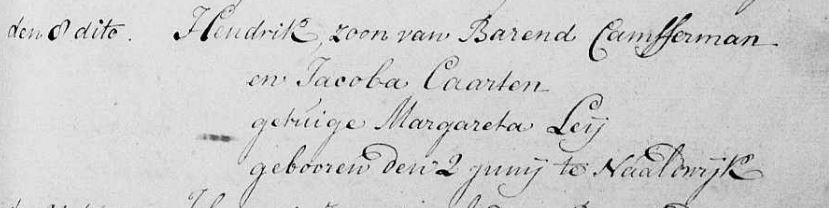 den 8 dito. Hendrik, zoon van Barend Camfferman
en Jacoba Caarten
getuige Margareta Leij
gebooren den 2 junij te Naaldwijk